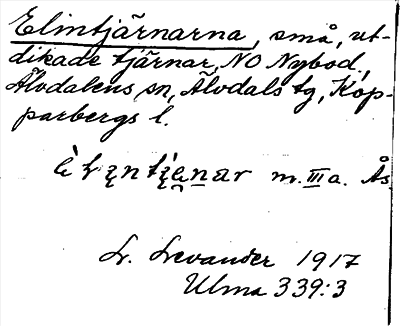 Elintjärnarna, små, ut-
dikade tjärnar, NO Nybod,
Älvdalens sn, Älvdals tg, Kop-
parbergs l.
m. III a. Ås
L. Levander 1917
Ulma 339:3